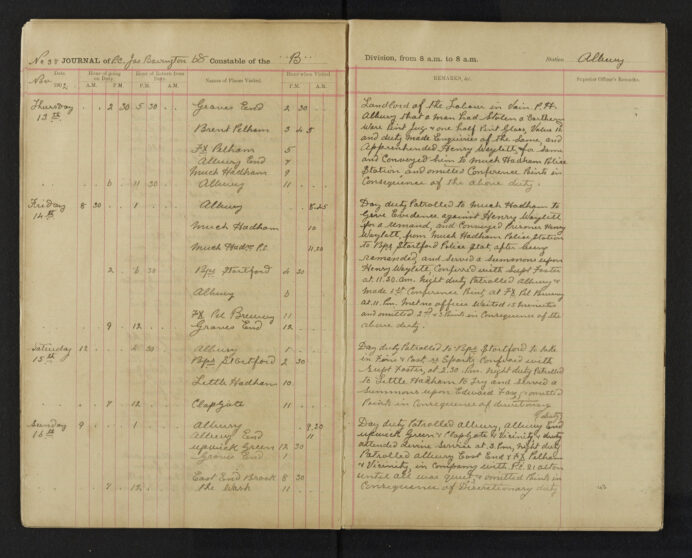 No 38 JOURNAL of P.C. Jas Barrington Constable of the "B" Division, from 8 a.m. to 8 a.m. Station Albury
Date Hour of going on Duty. Hour of Return from Duty. Names of Places Visited. Hour when Visited REMARKS, &c. Superior Officer's Remarks.
Nov. 1902. A.M. P.M. A.M. P.M. P.M. A.M.
Thursday 13th 2 30 5 30 Graves End 2 30
Brent Pelham 3 45
Fx Pelham 5
Albury End 7
Much Hadham 9
6 11 30 Albury 11
Friday 14th 8 30 1 Albury 8.45
Much Hadham 10
Much Hadm P.S. 11.20
2 6 30 Bps Stortford 4 30
Albury 6
Fx Pel Brewery 11
9 12 Graves End 12
Saturday 15th 12 4 30 Albury 1
Bps Stortford 2 30
Little Hadham 10
7 12 Clapgate 11
Sunday 16th 9 1 Albury 9.20
Albury End 11
Upwick Green 12 30
Graves End 1
East End Brook 8 30
7 12 the Wash 11
Landlord of the Labour in Vain P.H.
Albury that a man had Stolen a Earthen
Ware Pint Jug & one half Pint Glass, Value
and duty Made Enquiries of the Same, and
Apprehended Henry Waylett, for Same
and Conveyed him to Much Hadham Police
Station, and omitted Conference Points in
Consequence of the above duty.
Day duty Patrolled to Much Hadham to
Give Evidence against Henry Waylett
for a remand, and Conveyed Prisoner Henry
Waylett, from Much Hadham Police Station
to Bps Stortford Police Stat, after being
remanded, and Served a Summons upon
Henry Waylett, Conferred with Supt Foster
at 11.30 am. Night duty Patrolled Albury &
Made 1st Conference Point at Fx Pel Brewery
at 11. P.m. Met no officer Waited 15 Minutes
and omitted 2nd & 3 Point in Consequence of the
above duty.
Day duty Patrolled to Bps Stortford to take
in Fine & Cost re Sparks, Conferred with
Supt Foster, at 2.30 P.m. Night duty Patrolled
to Little Hadham to Try and Served a
Summons upon Edward Fay, & omitted
Points in Consequence of
duty
Day duty Patrolled Albury, Albury End
Upwick Green & Clapgate & Vicinity & duty
attended Divine Service at 3. P.m., Night duty
Patrolled Albury East End & Fx Pelham
& Vicinity, in Company with P.C. 21 Acton
until all was quiet, & omitted Points in
Consequence of Discretionary duty